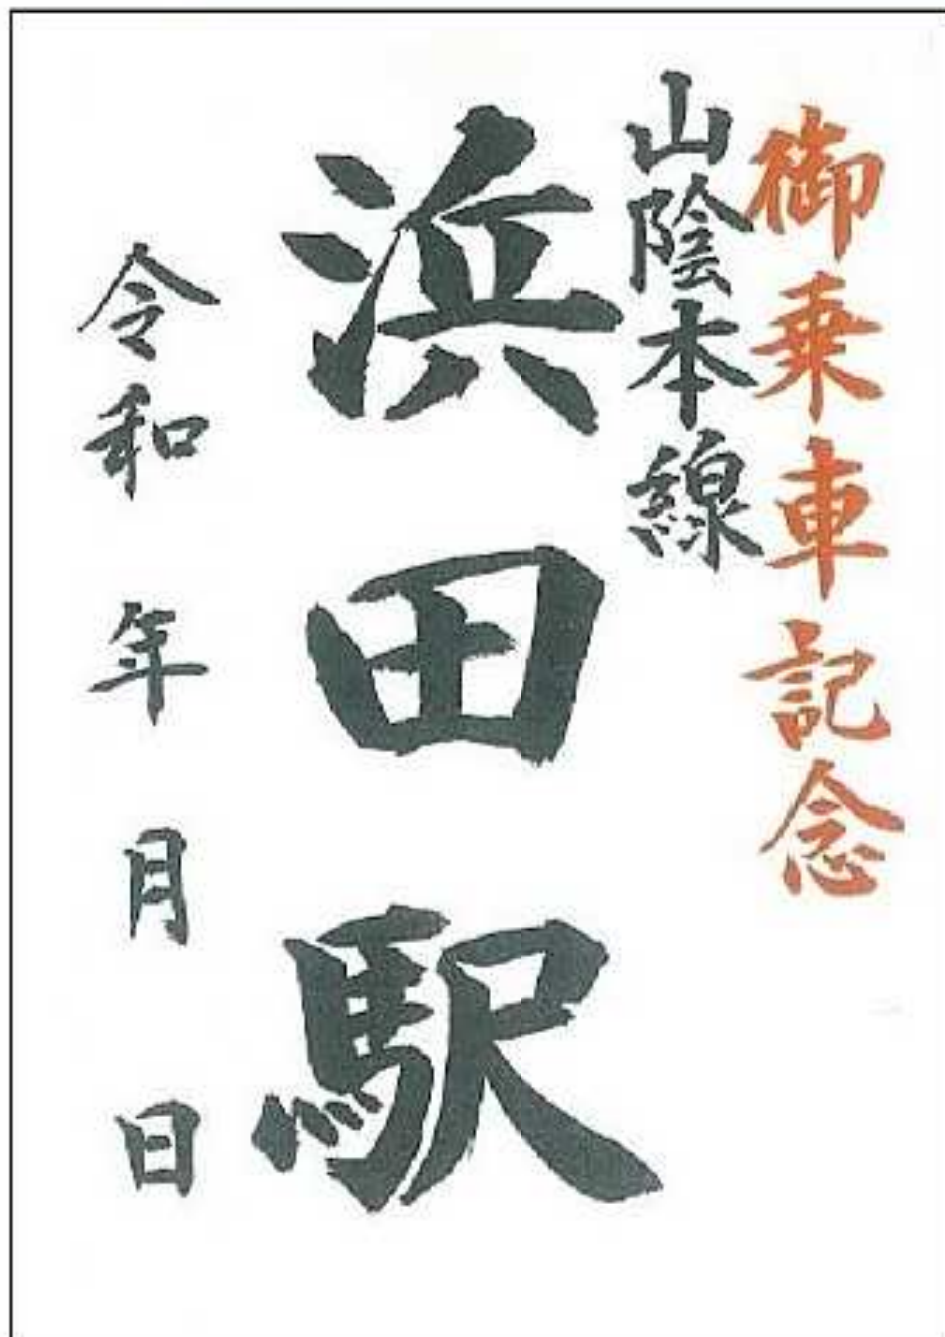 御乗車記念
山陰本線
浜田駅
令和 年 月 日